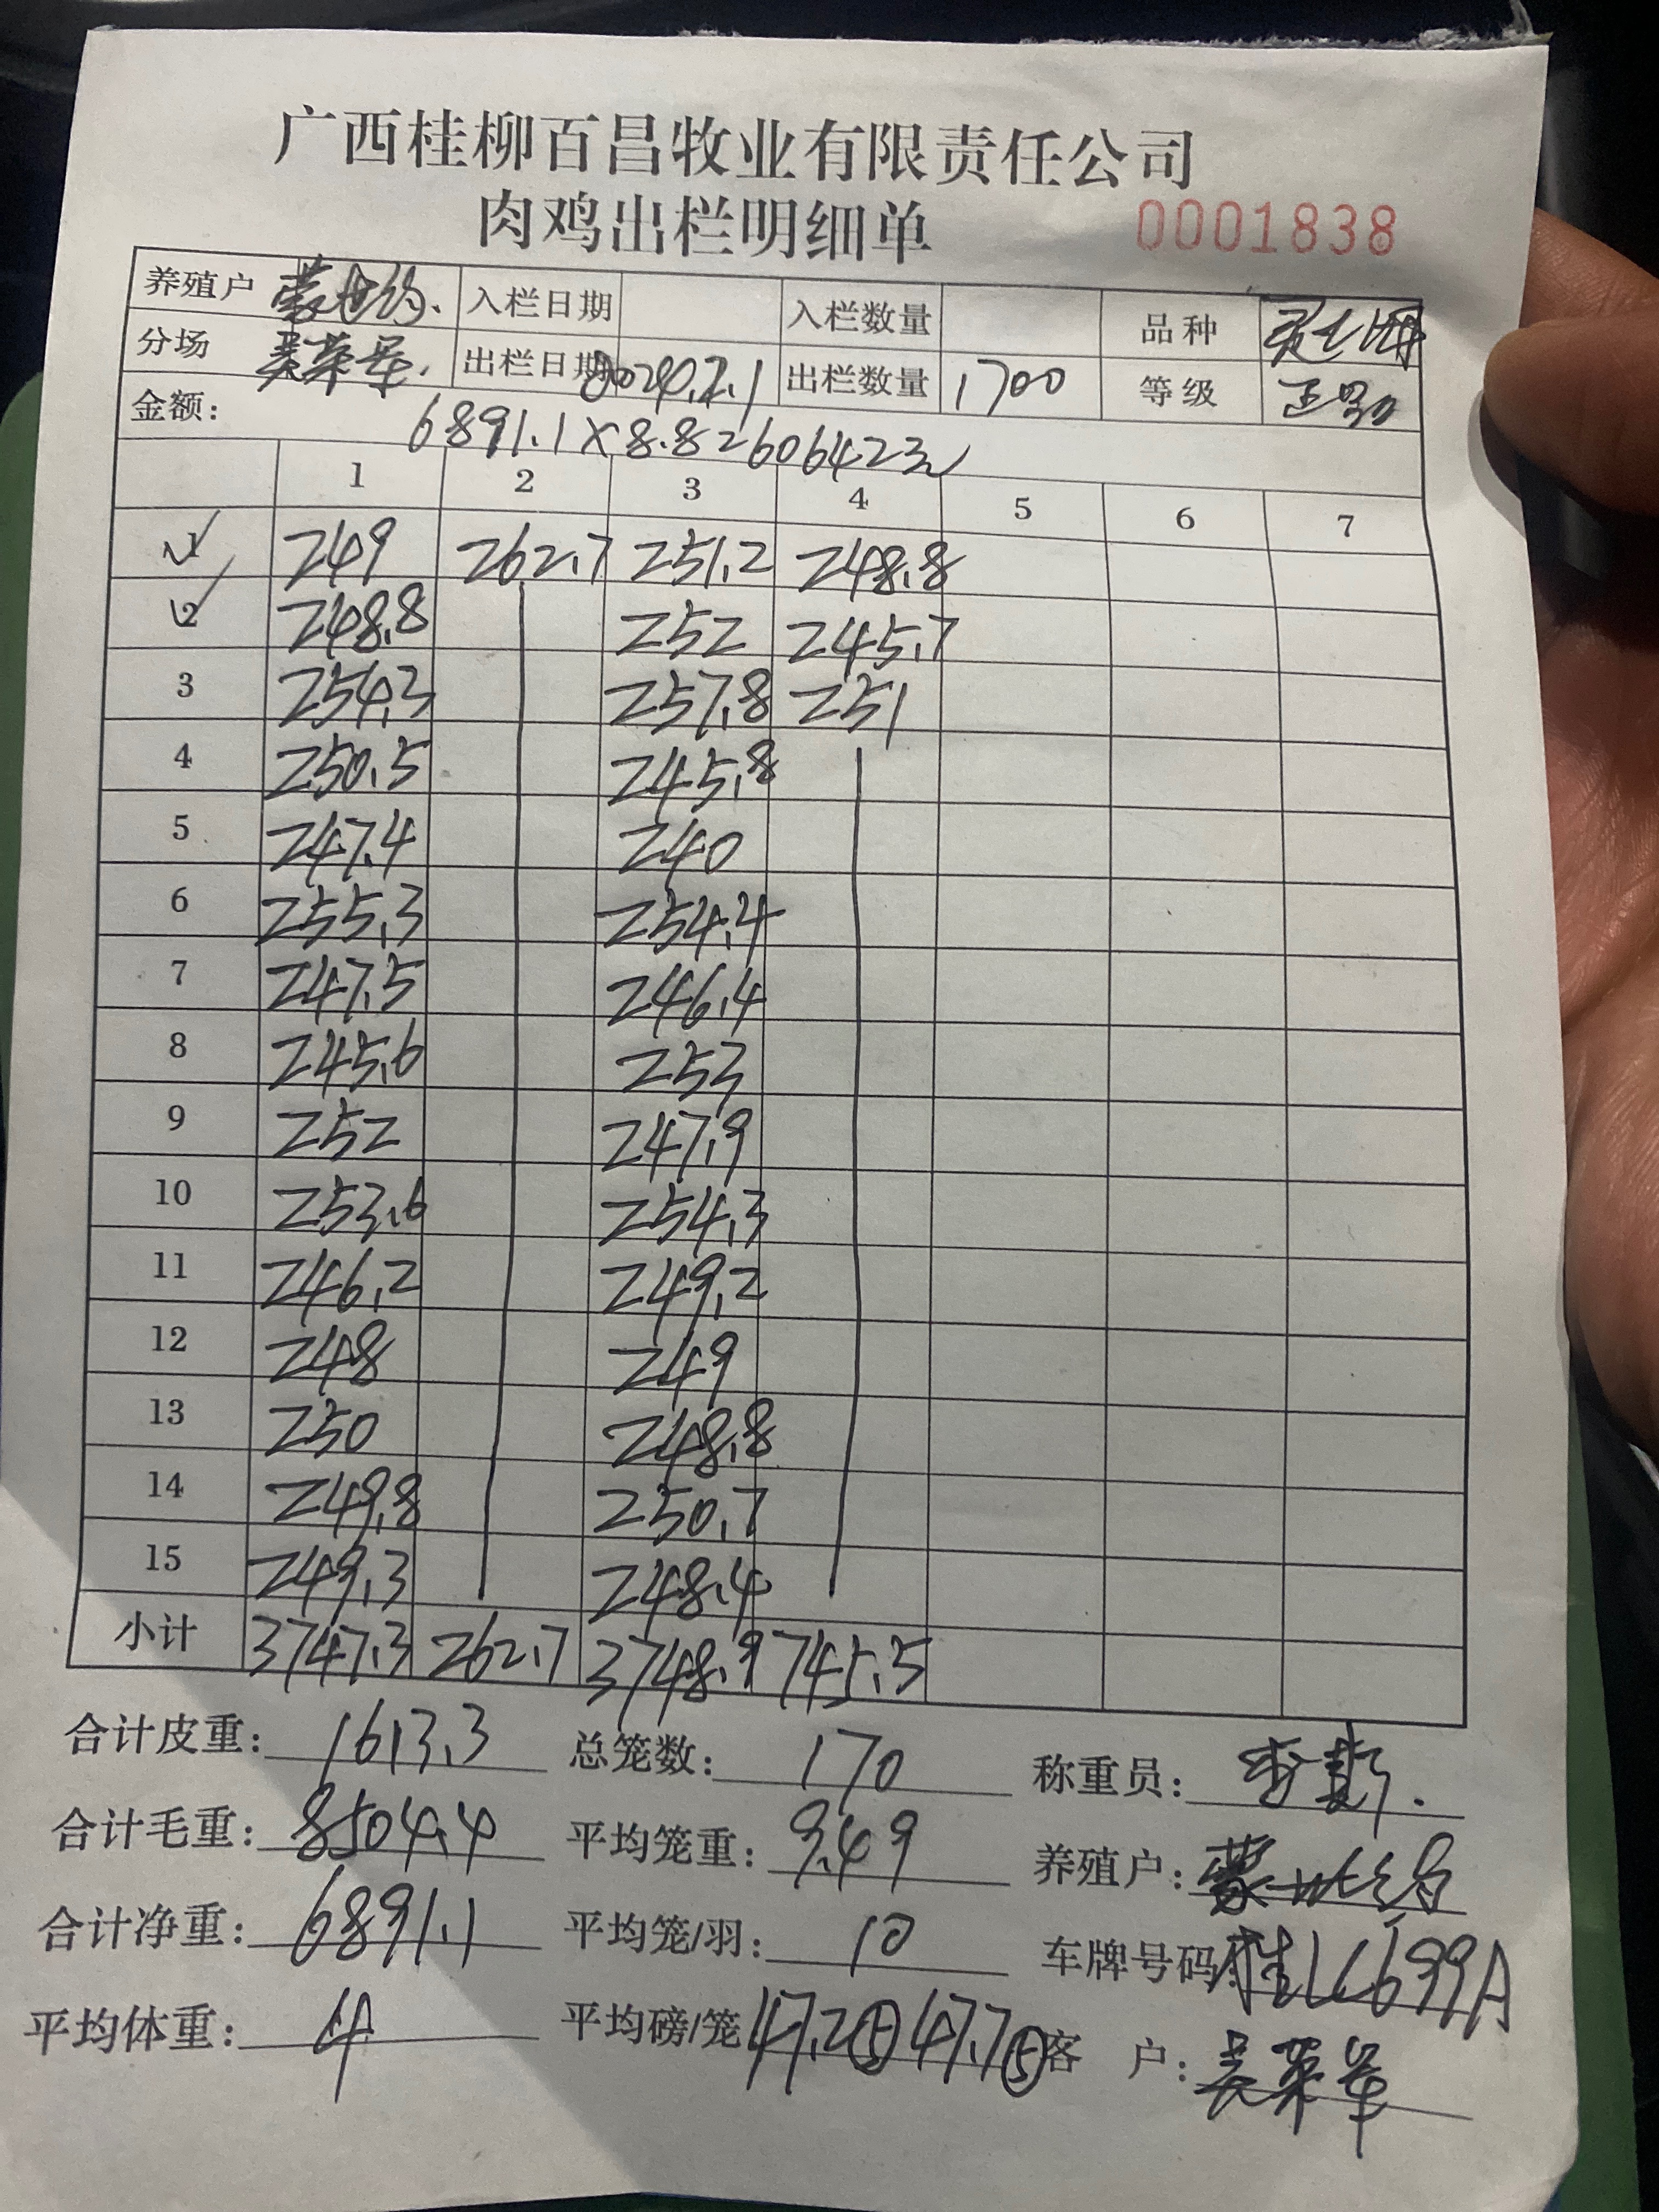 广西桂柳百昌牧业有限责任公司
肉鸡出栏明细单 0001838
养殖户 入栏日期 入栏数量 品种
分场 吴荣军. 出栏日期 出栏数量 1700 等级 正品
金额: 6891.1×8.8=60642元
1 2 3 4 5 6 7
1 249 262.7 251.2 248.8
2 248.8 252 245.7
3 254.3 257.8 251
4 250.5 245.8
5 247.4 240
6 255.3 254.4
7 247.5 246.4
8 245.6 253
9 252 247.9
10 253.6 254.3
11 246.2 249.2
12 248 249
13 250 248.8
14 249.8 250.7
15 249.3 248.4
小计 3747.3 262.7 3748.9 745.5
合计皮重: 1613.3 总笼数: 170 称重员:
合计毛重: 8504.4 平均笼重: 9.49 养殖户:
合计净重: 6891.1 平均笼/羽: 10 车牌号码: 桂LC699A
平均体重: 4 平均磅/笼 47.2⑤ 47.7⑤ 客 户: 吴荣军